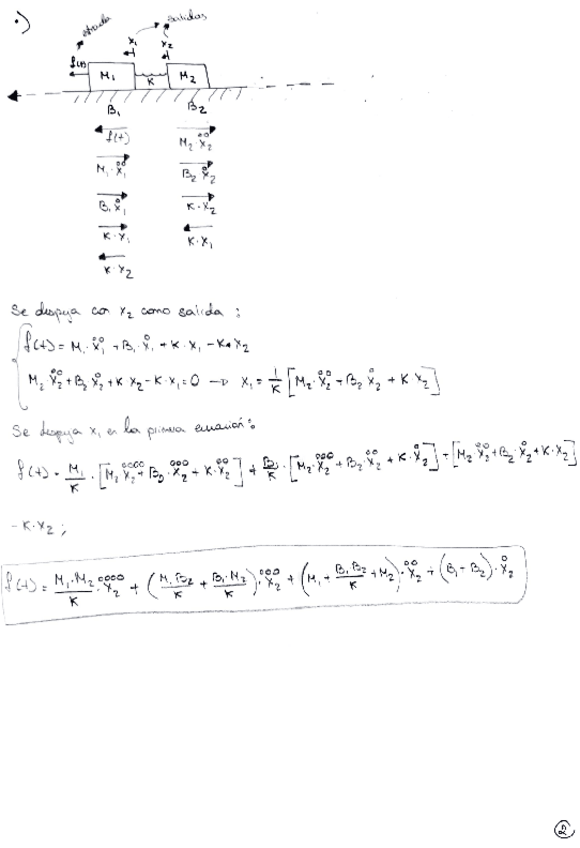 •)
entrada
salidas
x₁ x₂
f(t) M₁ K M₂
B₁ B₂
f(t) M₂·ẍ₂
M₁·ẍ₁ B₂ẋ₂
B₁ẋ₁ K·x₂
K·x₁ K·x₁
K·x₂
Se despeja con x₂ como salida ;
f(t) = M₁·ẍ₁ + B₁·ẋ₁ + K·x₁ - K·x₂
M₂ẍ₂ + B₂ẋ₂ + K x₂ - K·x₁ = 0 → x₁ = 1/K [M₂·ẍ₂ + B₂ẋ₂ + K x₂]
Se despeja x₁ en la primera ecuación:
f(t) = M₁/K · [M₂x₂°°°° + B₂·x₂°°° + K·ẍ₂] + B₁/K · [M₂x₂°°° + B₂·ẍ₂ + K·ẋ₂] + [M₂·ẍ₂ + B₂·ẋ₂ + K·x₂]
- K·x₂ ;
f(t) = M₁·M₂/K · x₂°°°° + (M₁B₂/K + B₁·M₂/K)·x₂°°° + (M₁ + B₁·B₂/K + M₂)·ẍ₂ + (B₁ + B₂)·ẋ₂
2